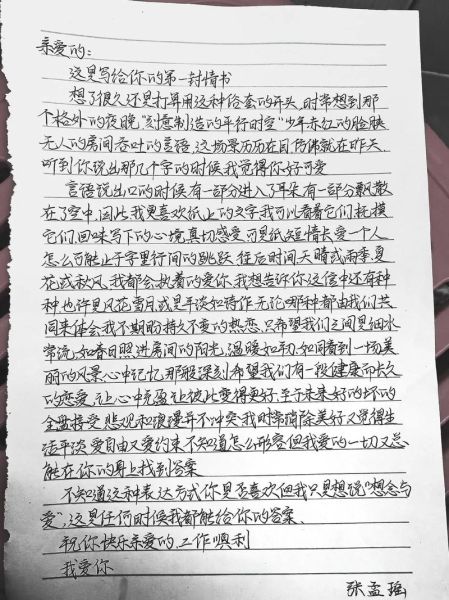 亲爱的:
这是写给你的第一封情书
想了很久还是打算用这种俗套的开头,时常想到那
个格外的夜晚"刻意制造的平行时空"少年赤红的脸颊
无人的房间吞吐的言语,这场景历历在目仿佛就在昨天,
听到你说出那几个字的时候我觉得你好可爱
言语说出口的时候有一部分进入了耳朵,有一部分飘散
在了空中,因此我更喜欢纸上的文字我可以看着它们,抚摸
它们,回味写下的心境,真切感受,可是纸短情长,爱一个人
怎么可能止于字里行间的跳跃,往后时间天晴或雨季,夏
花或秋风,我都会执着的爱你,我想告诉你,这信中还有种
种,也许是风花雪月,或是平淡如诗作,无论哪种都由我们共
同来体会,我不期盼持久不变的热恋,只希望我们之间是细水
常流,如春日照进房间的阳光,温暖如初,如同看到一场美
丽的风景,心中记忆那般深刻,希望我们有一段健康而长久
的恋爱,让心中充盈,让彼此变得更好,至于未来好的坏的
全盘接受,悲观和浪漫并不冲突,我时常消除美好,又觉得生
活平淡,爱自由又爱约束,不知道怎么形容,但我爱的一切又总
能在你的身上找到答案
不知道这种表达方式你是否喜欢但我只是想说"想念与
爱",这是任何时候我都能给你的答案.
祝你快乐亲爱的,工作顺利
我爱你
张孟瑶